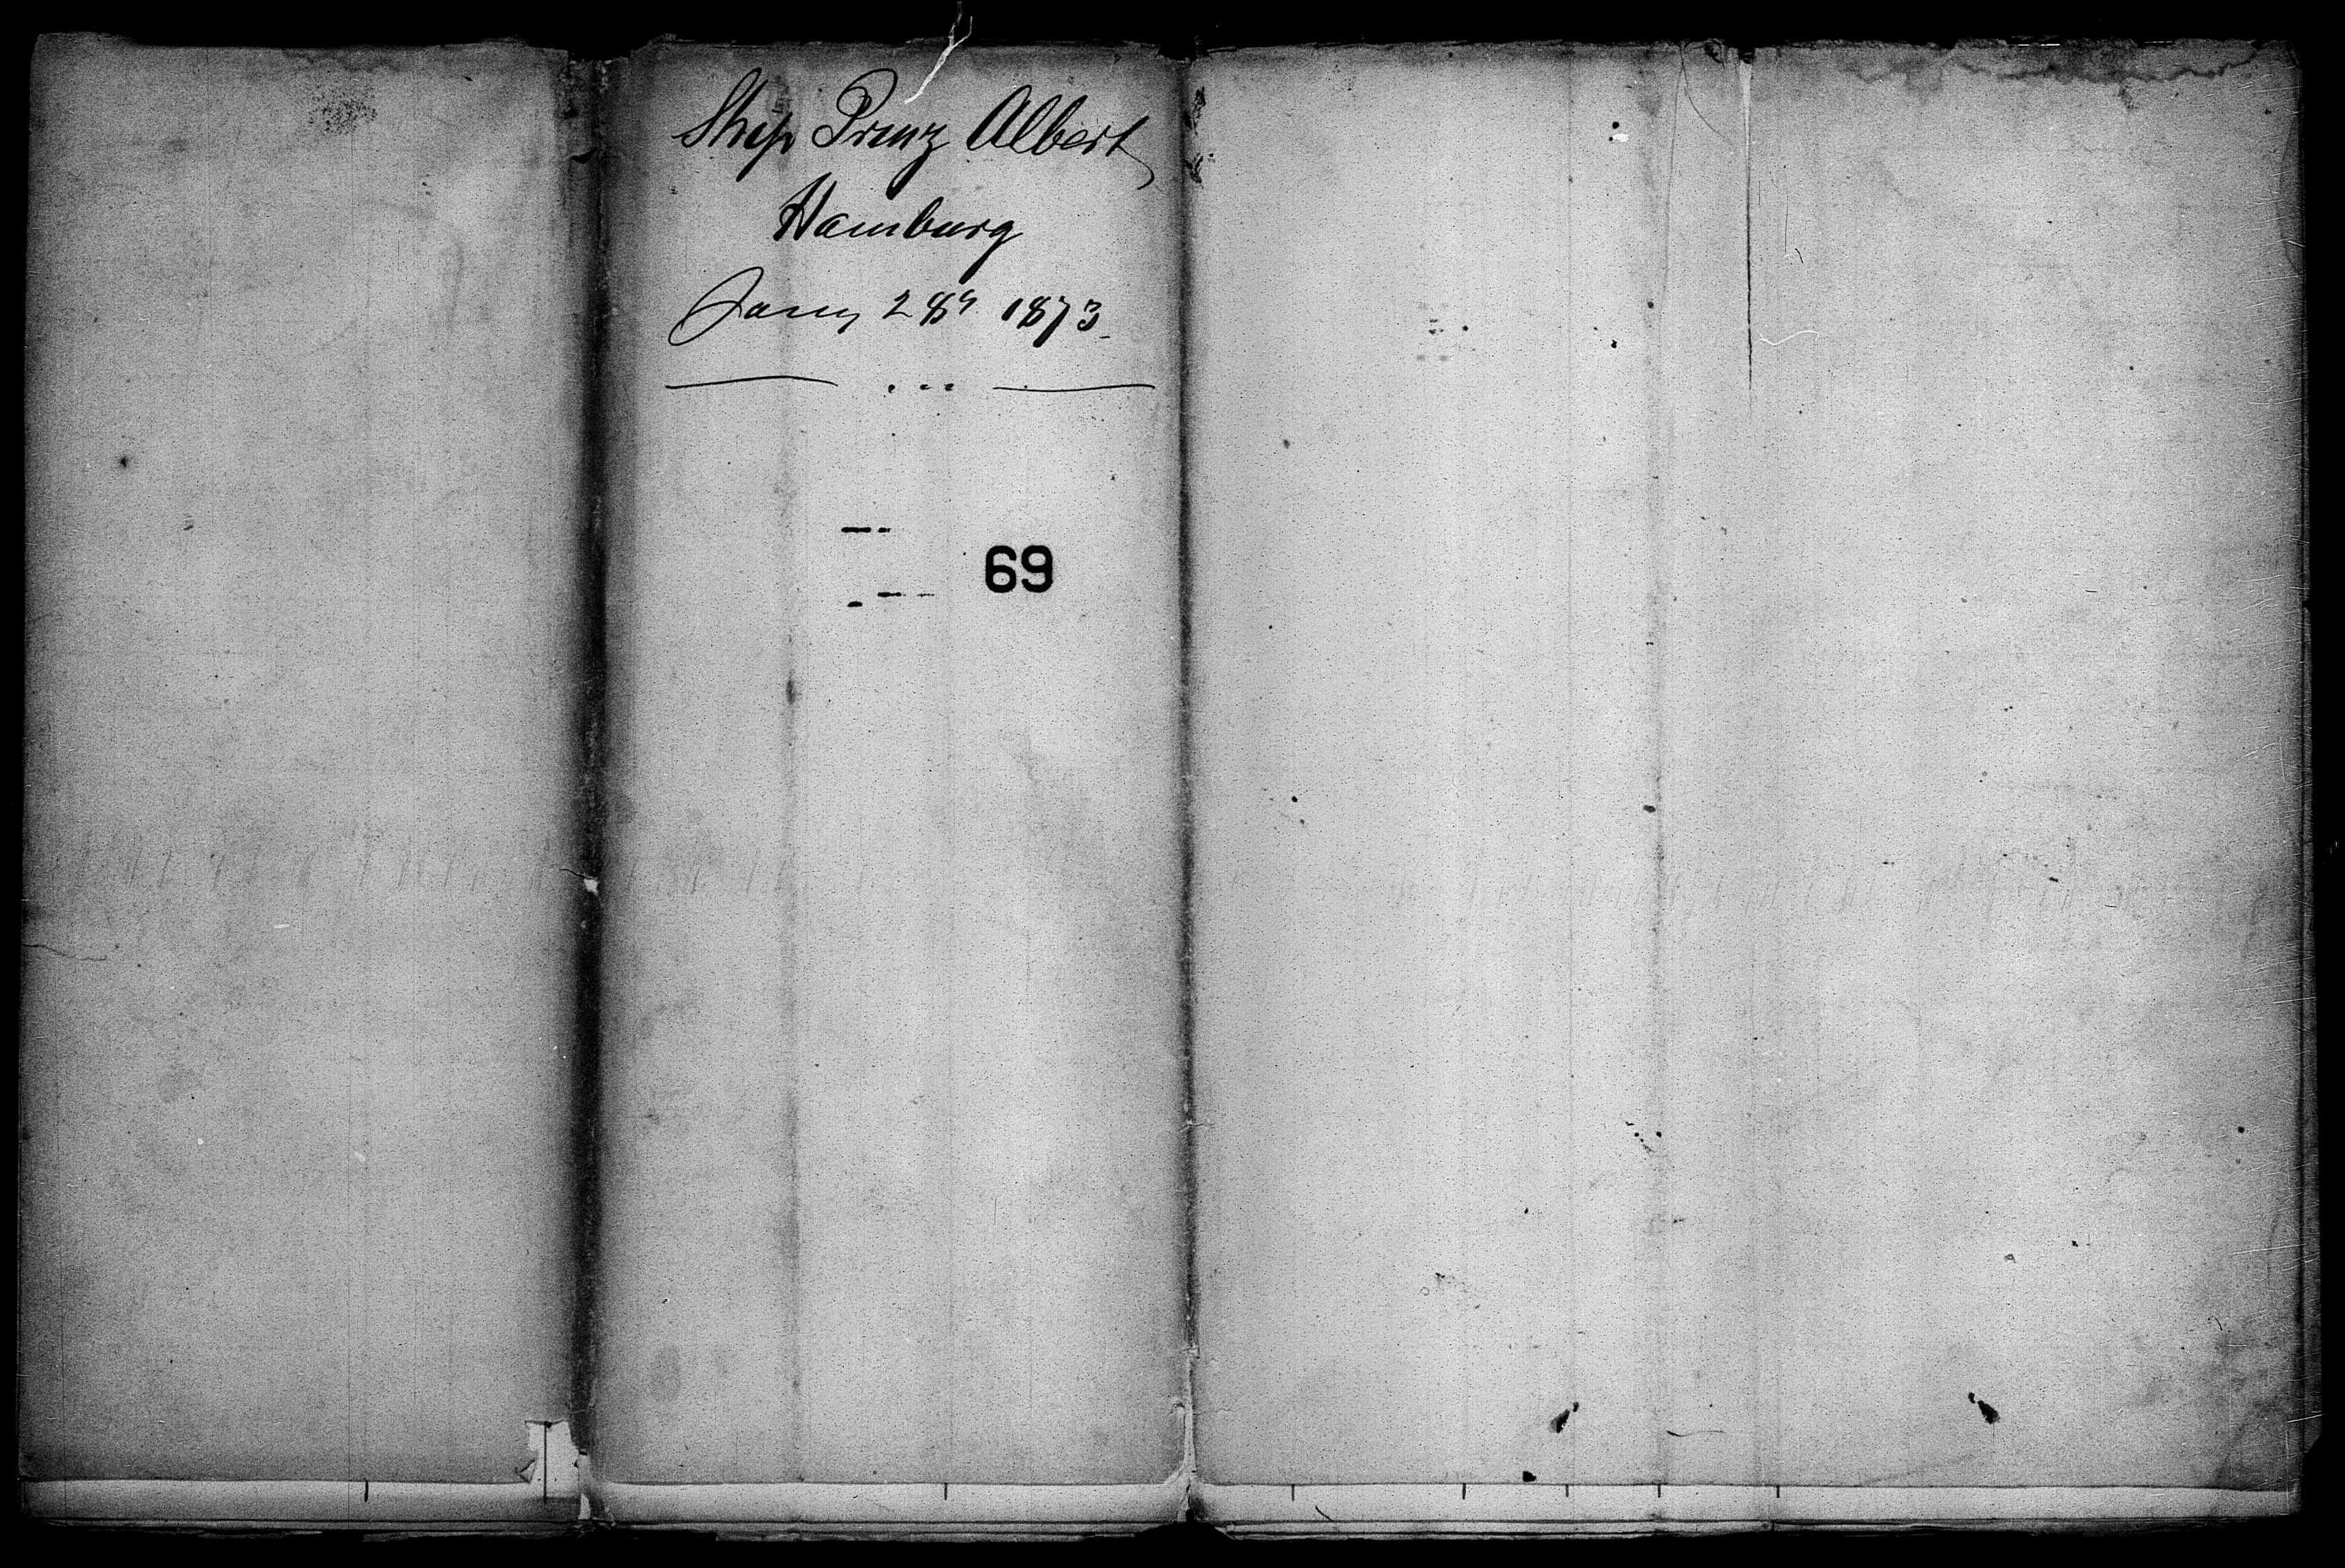 Ship Prinz Albert
Hamburg
Jany 28th 1873
69